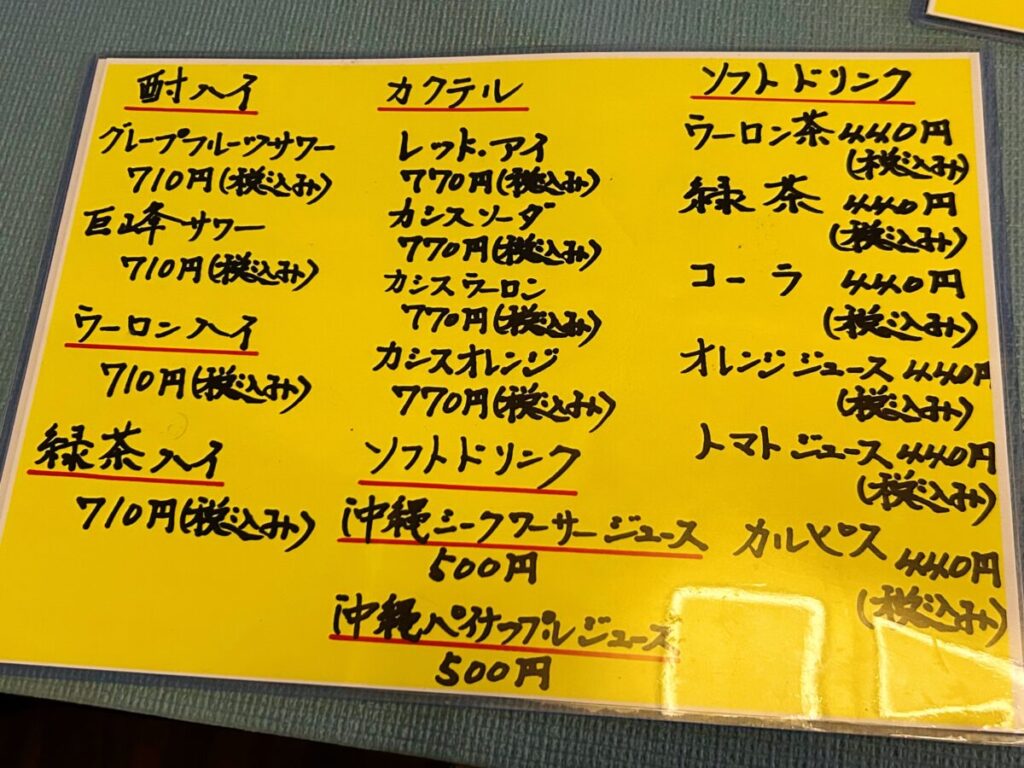 酎ハイ
グレープフルーツサワー
710円(税込み)
巨峰サワー
710円(税込み)
ウーロンハイ
710円(税込み)
緑茶ハイ
710円(税込み)
カクテル
レッド・アイ
770円(税込み)
カシスソーダ
770円(税込み)
カシスウーロン
770円(税込み)
カシスオレンジ
770円(税込み)
ソフトドリンク
沖縄シークワーサージュース
500円
沖縄パイナップルジュース
500円
ソフトドリンク
ウーロン茶 440円
(税込み)
緑茶 440円
(税込み)
コーラ 440円
(税込み)
オレンジジュース 440円
(税込み)
トマトジュース 440円
(税込み)
カルピス 440円
(税込み)